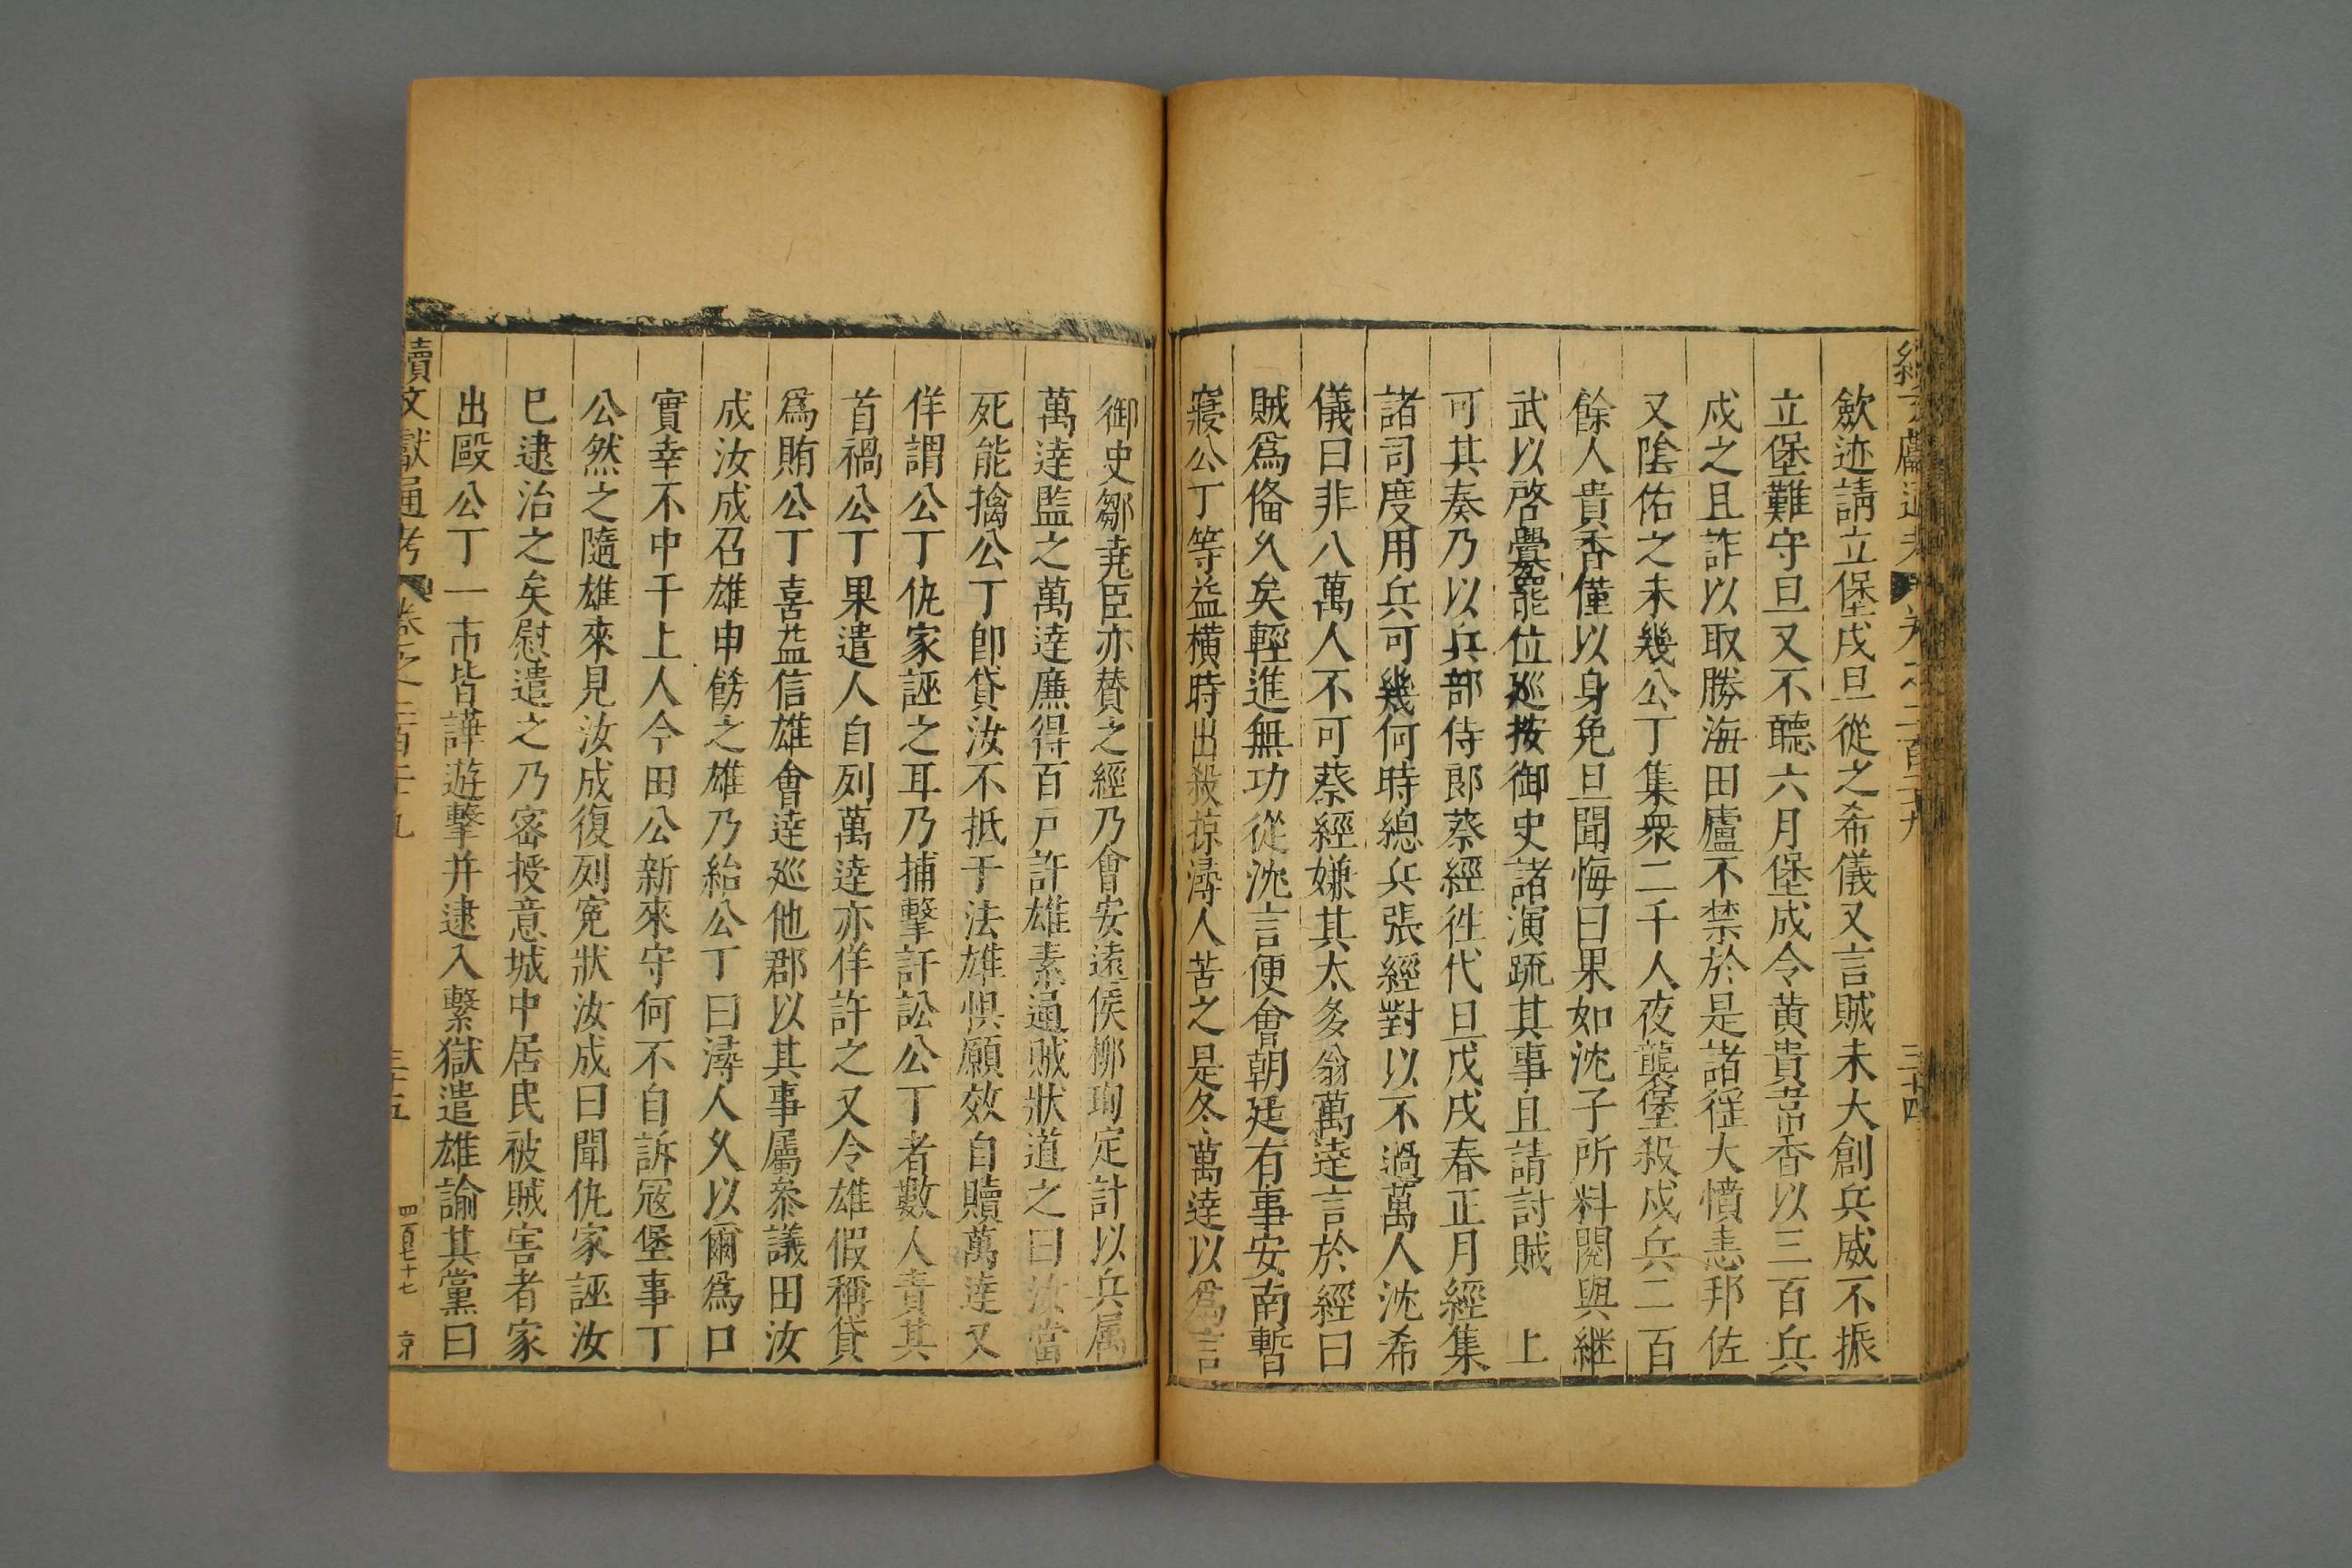 歛迹請立堡戍旦從之希儀又言賊未大創兵威不振
立堡難守旦又不聽六月堡成令黄貴韋香以三百兵
戍之且詐以取勝海田廬不禁於是諸徃大憤恚邦佐
又隂佑之未幾公丁集衆二千人夜襲堡殺戍兵二百
餘人貴香僅以身免旦聞悔曰果如沈子所料閱與継
武以啓釁罷位廵按御史諸演疏其事且請討賊 上
可其奏乃以兵部侍郎蔡經徃代旦戊戌春正月經集
諸司度用兵可幾何時緫兵張經對以不過萬人沈希
儀曰非八萬人不可蔡經嫌其太多翁萬逹言於經曰
賊爲俻久矣輕進無功從沈言便會朝廷有事安南暫
寢公丁等益橫時出殺掠潯人苦之是冬萬逹以爲言
御史鄒尭臣亦賛之經乃會安遠侯栁珣定計以兵属
萬逹監之萬逹亷得百戸許雄素通賊狀道之曰汝當
死能擒公丁卽貸汝不抵于法雄惧願效自贖萬逹又
佯謂公丁仇家誣之耳乃捕擊訐訟公丁者數人責其
首禍公丁果遣人自列萬逹亦佯許之又令雄假稱貸
爲賄公丁喜益信雄會逹廵他郡以其事屬叅議田汝
成汝成召雄申飭之雄乃紿公丁曰潯人久以爾爲口
實幸不中千上人今田公新來守何不自訴冦堡事丁
公然之隨雄來見汝成復列寃狀汝成曰聞仇家誣汝
巳逮治之矣慰遣之乃宻授意城中居民被賊害者家
出毆公丁一市皆譁遊擊并逮入繫獄遣雄諭其黨曰
續文獻通考 卷之二百三十九 三十五 四百七十七 京